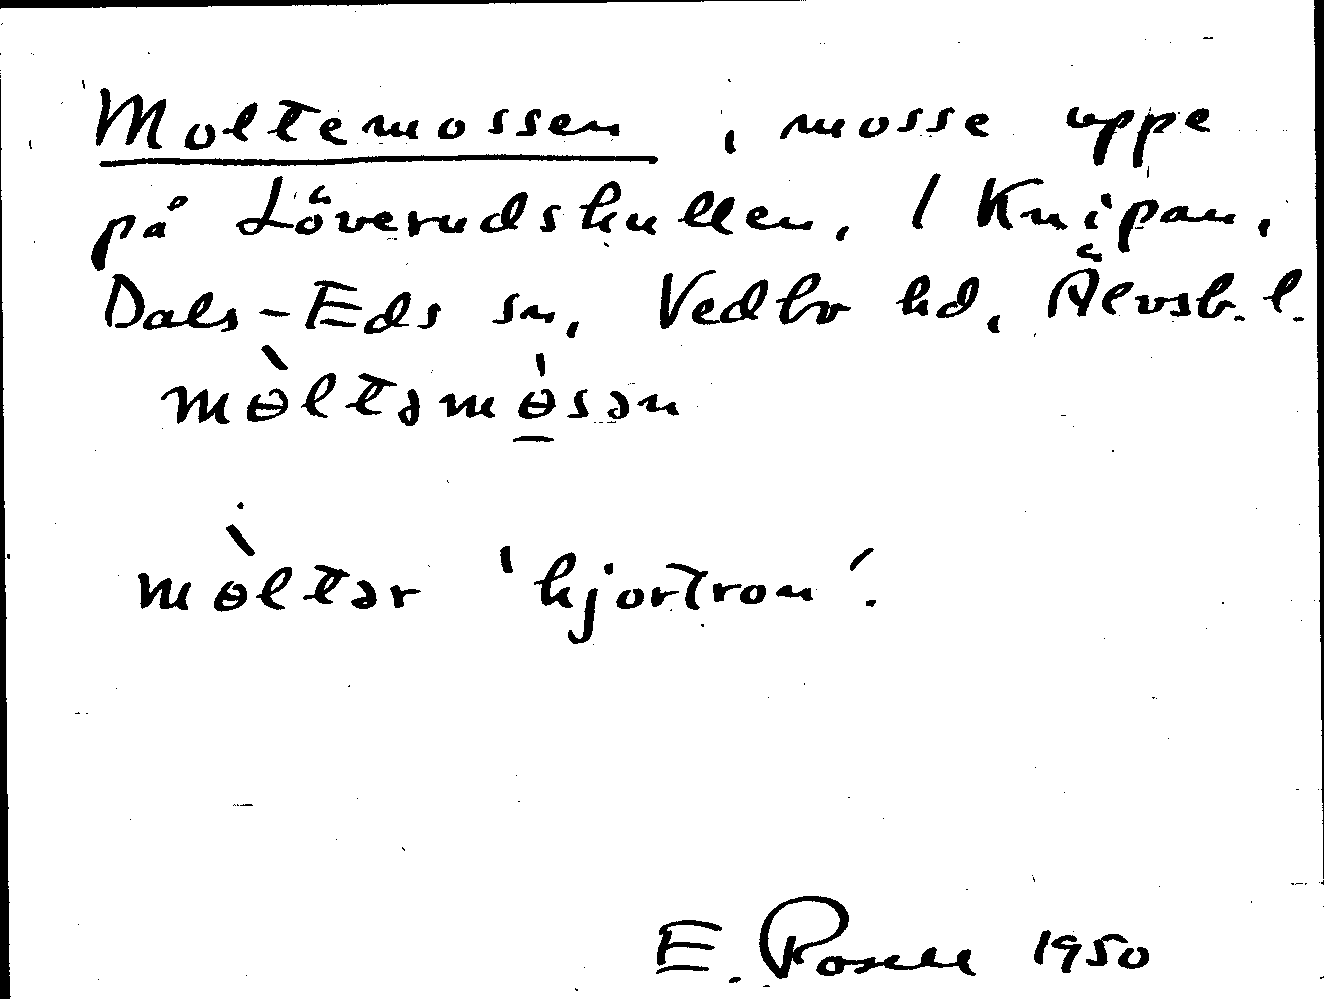 Moltemossen, mosse uppe
på Löverudskullen, 1 Knipan,
Dals-Eds sn, Vedbo hd, Älvsb. l.
mɵ̀ltəmɵ̠̍sən
mɵ̀ltər 'hjortron'.
E. Rosell 1950